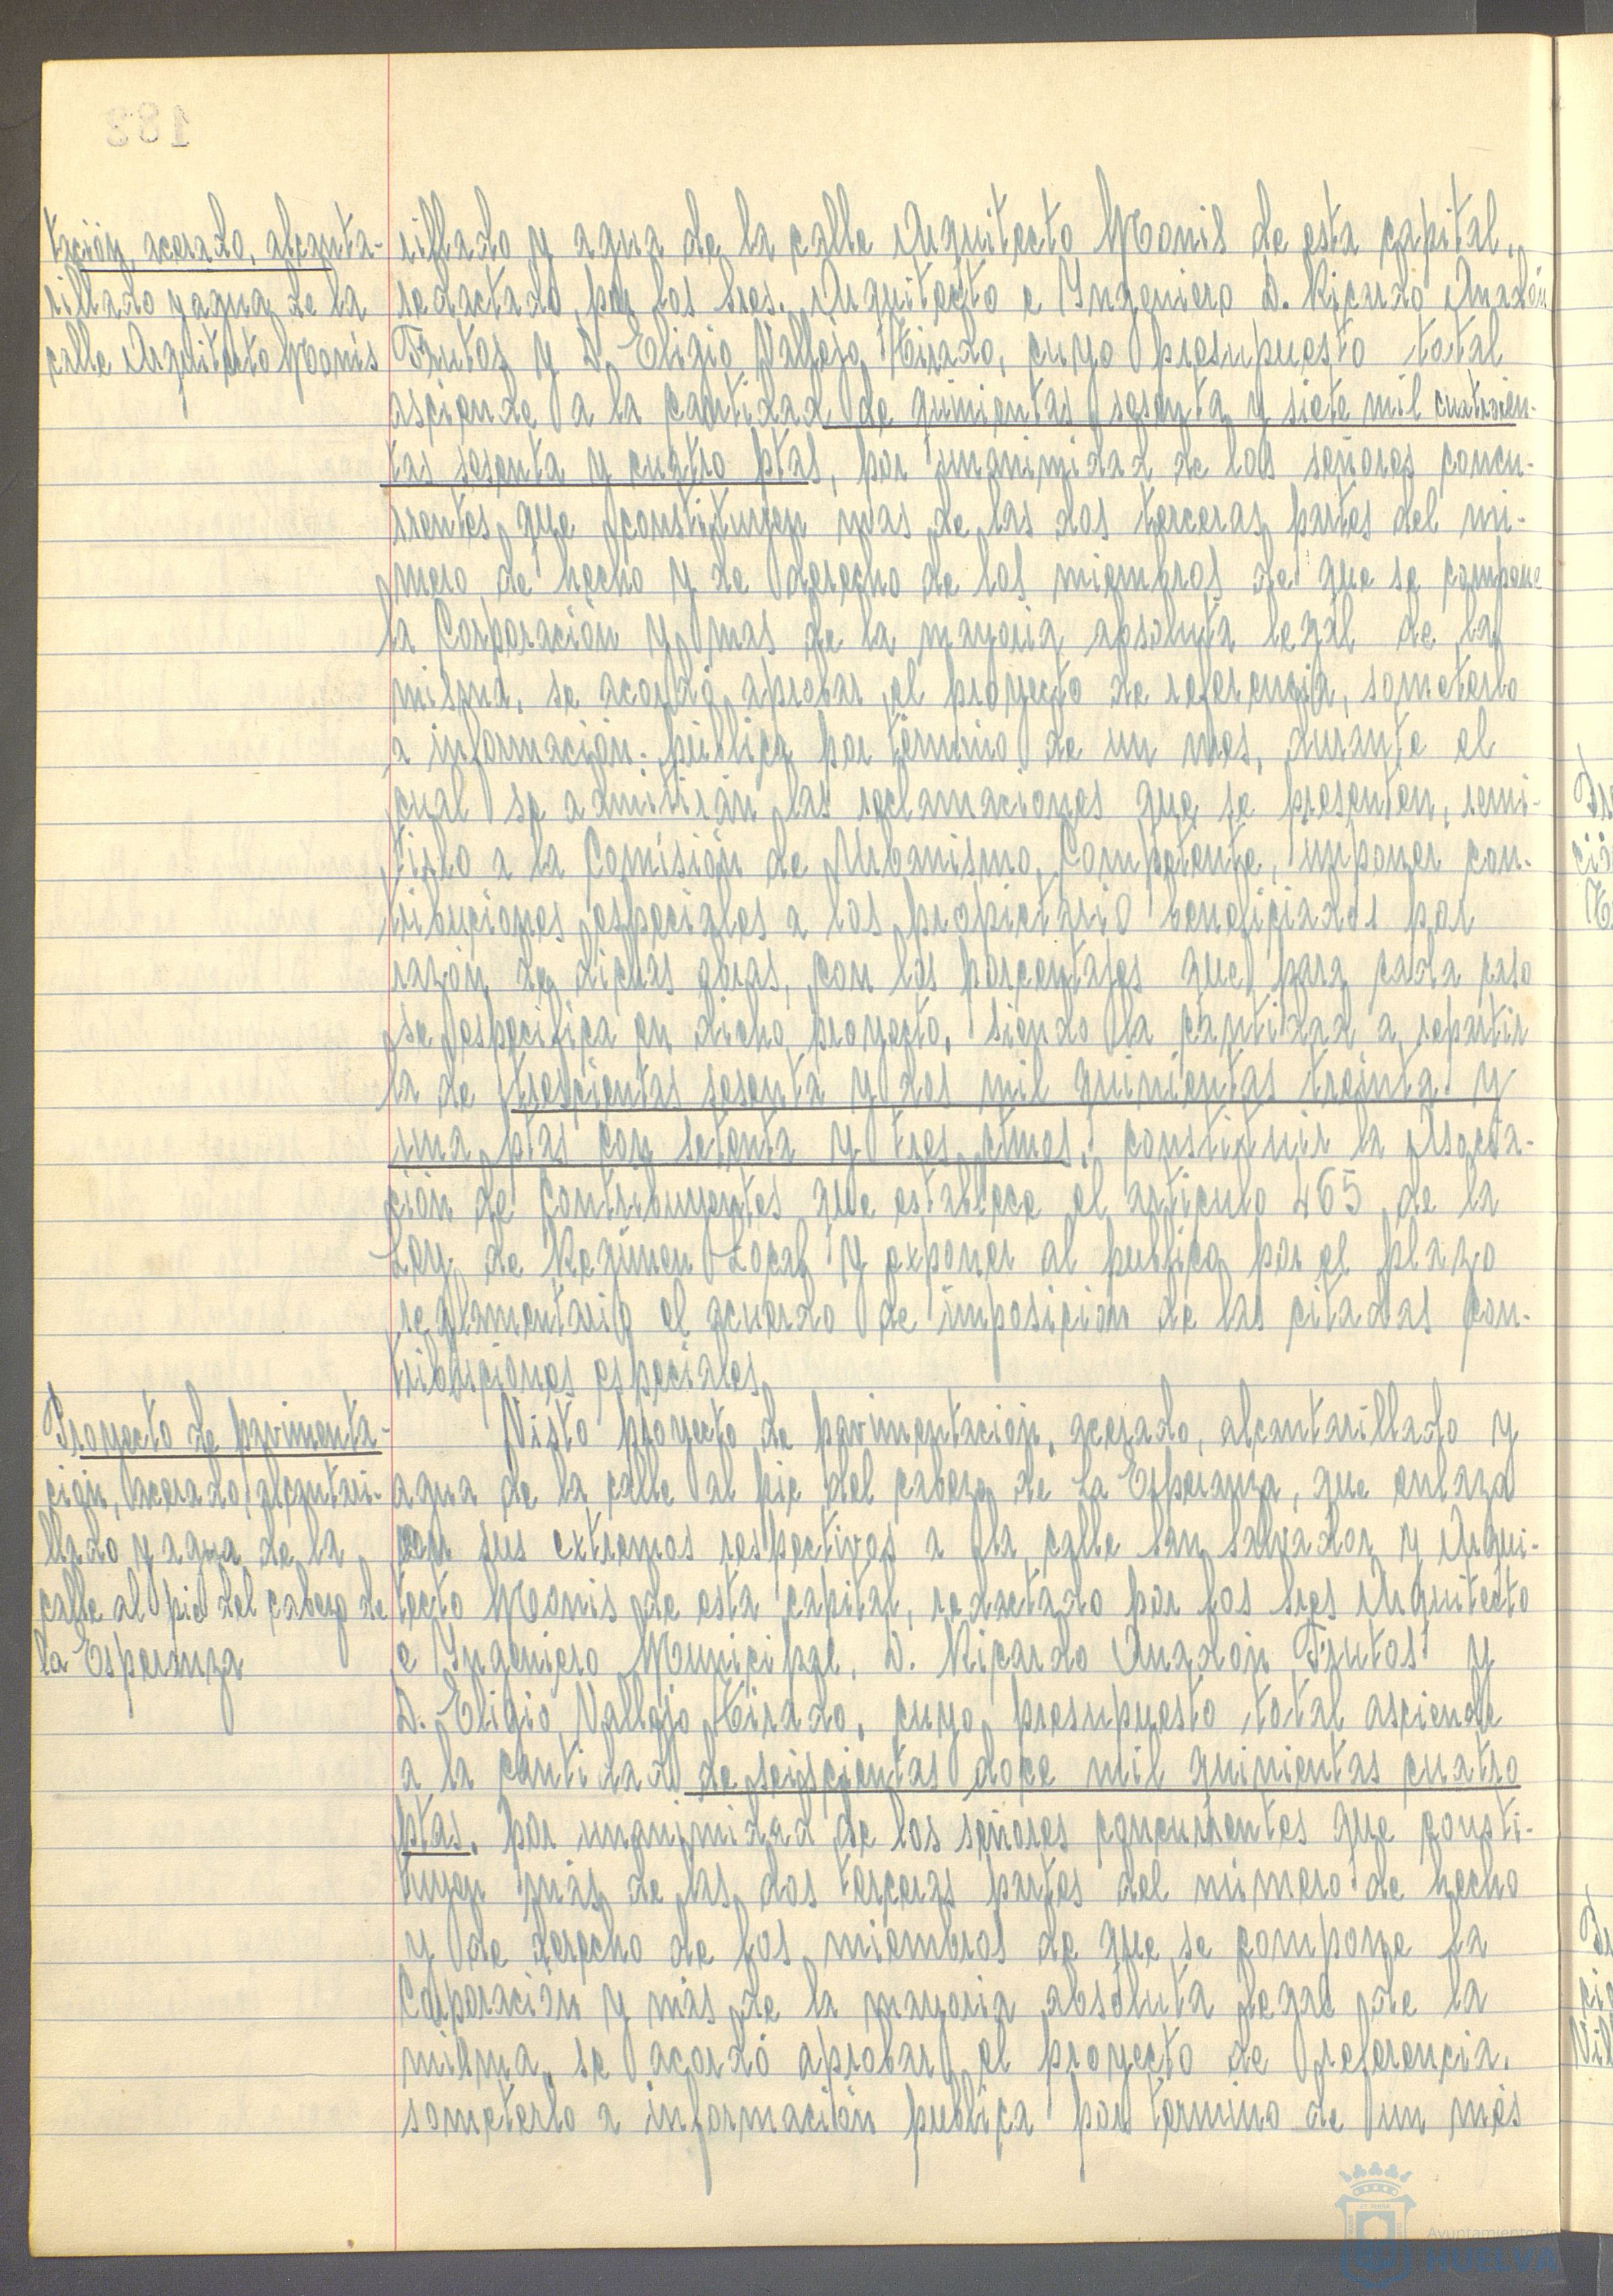 tación, acerado, alcanta-
rillado y agua de la
calle Arquitecto Monis
rillado y agua de la calle Arquitecto Monis de esta capital,
redactado por los Sres. Arquitecto e Ingeniero D. Ricardo Anadón
Frutos y D. Eligio Vallejo Tirado, cuyo presupuesto total
asciende a la cantidad de quinientas sesenta y siete mil cuatrocien-
tas sesenta y cuatro ptas, por unanimidad de los señores concu-
rrentes que constituyen mas de las dos terceras partes del nú-
mero de hecho y de derecho de los miembros de que se compone
la Corporación y mas de la mayoria absoluta legal de la
misma, se acordó aprobar el proyecto de referencia, someterlo
a información pública por término de un mes, durante el
cual se admitirán las reclamaciones que se presenten, remi-
tirlo a la Comisión de Urbanismo Competente, imponer con-
tribuciones especiales a los propietario beneficiados por
razón de dichas obras, con los porcentajes que para cada caso
se especifica en dicho proyecto, siendo la cantidad a repartir
la de trescientas sesenta y dos mil quinientas treinta y
una ptas con setenta y tres ctmos, constituir la Asocia-
ción de Contribuyentes que establece el artículo 465 de la
Ley de Regimen Local y exponer al publico por el plazo
reglamentario el acuerdo de imposición de las citadas con-
tribuciones especiales
Proyecto de pavimenta-
ción, acerado, alcantari-
llado y agua de la
calle al pie del cabezo de
la Esperanza
Visto proyecto de pavimentación, acerado, alcantarillado y
agua de la calle al pie del cabezo de La Esperanza, que enlaza
con sus extremos respectivos a la calle San Salvador y Arqui-
tecto Monis de esta capital, redactado por los Sres Arquitecto
e Ingeniero Municipal, D. Ricardo Anadón Frutos y
D. Eligio Vallejo Tirado, cuyo presupuesto total asciende
a la cantidad de seiscientas doce mil quinientas cuatro
ptas, por unanimidad de los señores concurrentes que consti-
tuyen más de las dos terceras partes del número de hecho
y de derecho de los miembros de que se compone la
Corporación y más de la mayoria absoluta legal de la
misma, se acordó aprobar el proyecto de referencia,
someterlo a información publica por termino de un mes
Ayuntamiento de
HUELVA